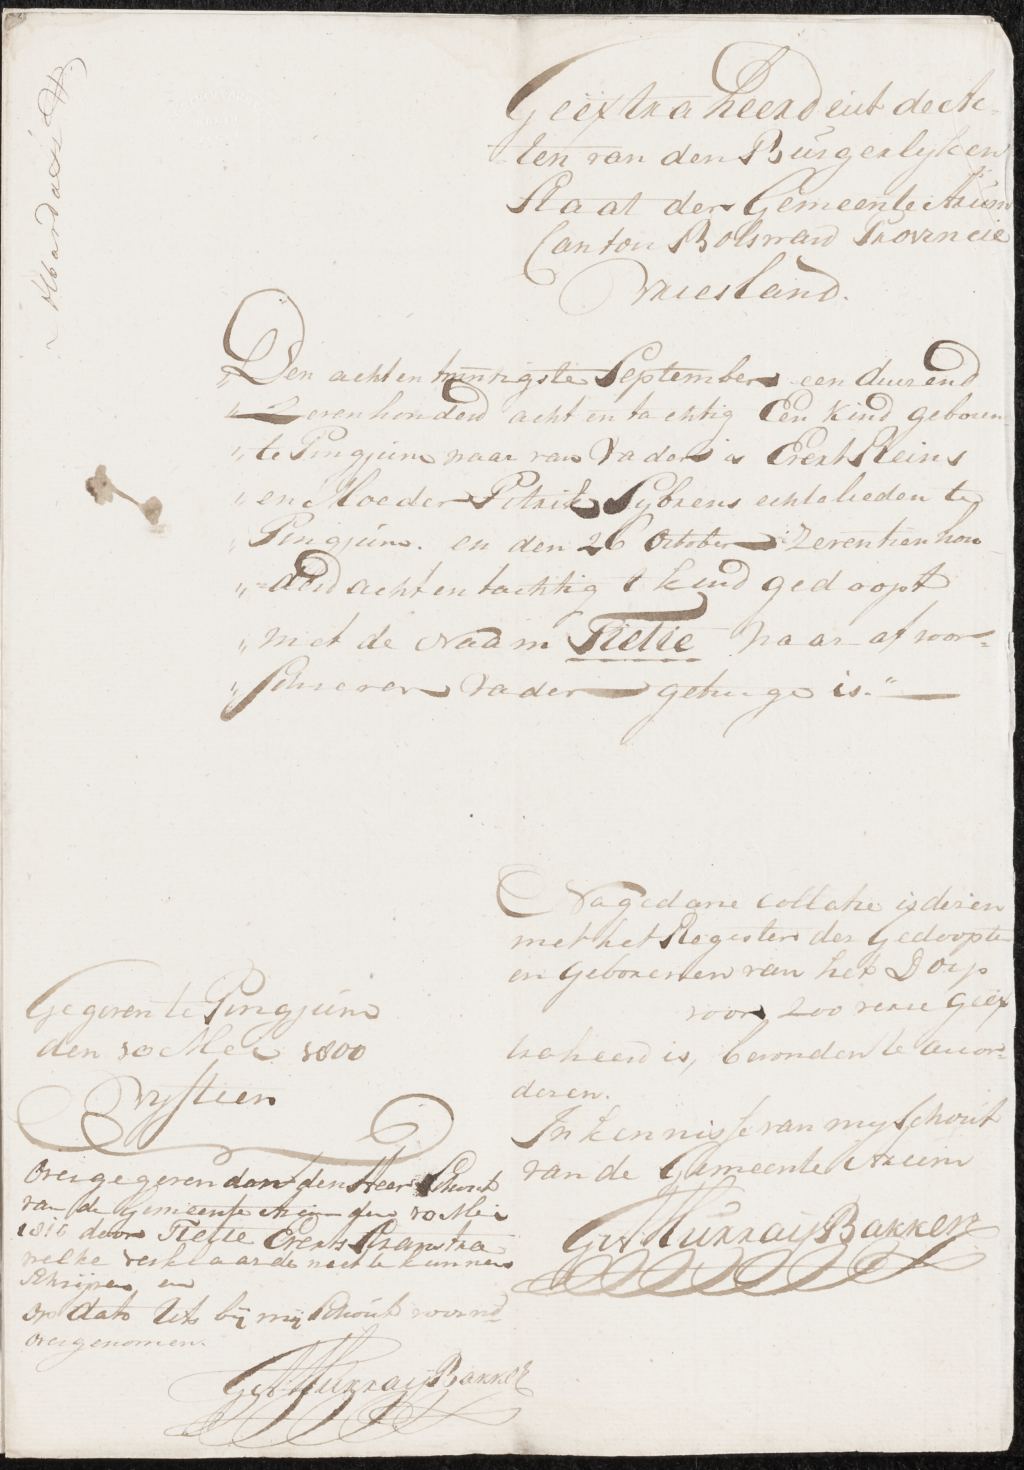 Geëxtraheerd uit de Ac-
ten van den Burgerlyken
Staat der Gemeente Arum
Canton Bolsward Provincie
Vriesland.
„Den achtentwintigste September een duizend
„Zevenhonderd acht en tachtig Een kind geboren
„te Pingjum waar van Vader is Evert Reins
„en Moeder Pitrik Sybrens echtelieden te
„Pingjum. en den 26 October Zeventienhon
„=derd achtentachtig t kind gedoopt
„met de Naam Tietie waar af voor=
„schreven Vader getuige is.“
Na gedane collatie is dezen
met het Register der Gedoopte
en Geborenen van het Dorp
voor zoo verre Geëx
traheerd is, bevonden te accor-
deren.
In kennisse van my Schout
van de Gemeente Arum
GvMurraijBakker
Gegeven te Pingjum
den 10 Mei 1800
Overgegeven aan den Heer Schout
van de Gemeente Arum den 10 Mei
1816 door Tietie Everts
welke verklaarde niet te kunnen
Schrijven en
op dato Uts bij mij Schout voornd
overgenomen.
GvMurraijBakker